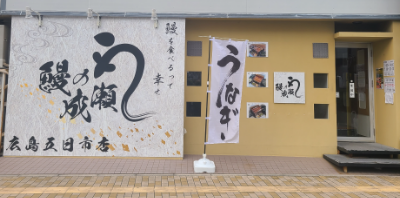 鰻を食べるって
幸せ
うの瀬
鰻の成瀬
広島五日市店
うなぎ
鰻の成瀬